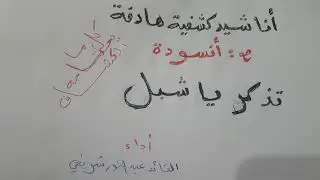 أناشيد كشفية هادفة
ع: أنسودة
تذكر يا شبل
أداء
القائد عبد النور شريفي